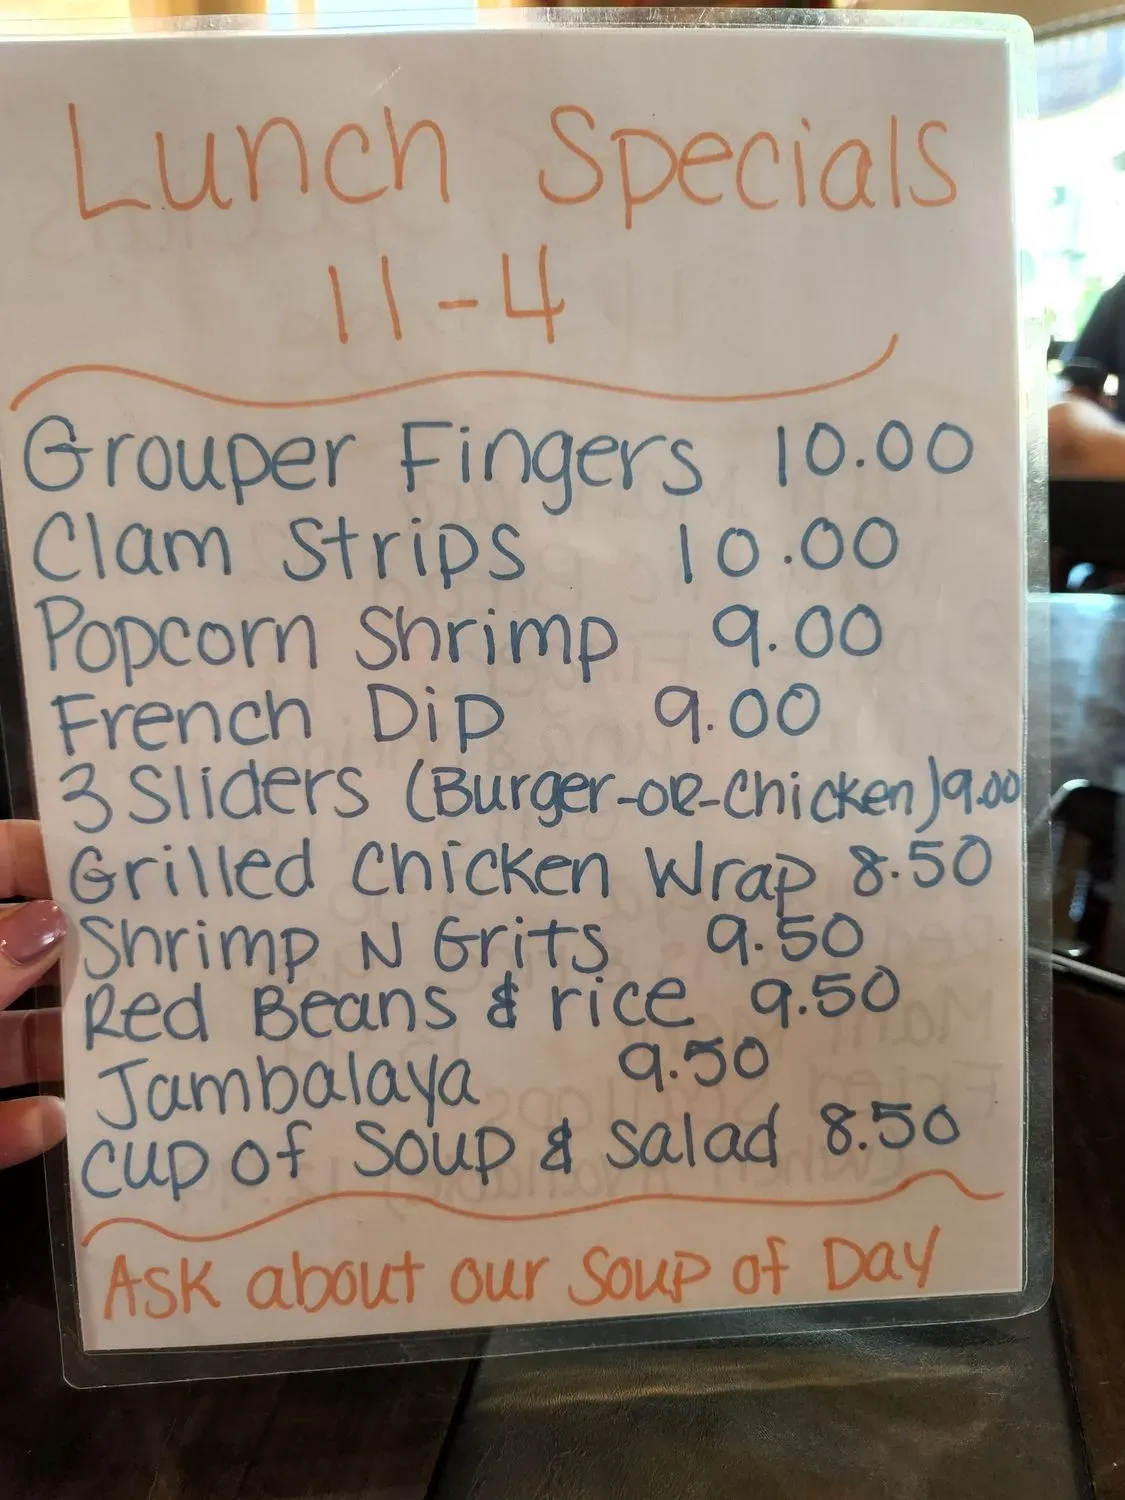 Lunch Specials
11-4
Grouper Fingers 10.00
Clam Strips 10.00
Popcorn Shrimp 9.00
French Dip 9.00
3 Sliders (Burger-or-Chicken) 9.00
Grilled Chicken Wrap 8.50
Shrimp N Grits 9.50
Red Beans & rice 9.50
Jambalaya 9.50
cup of Soup & Salad 8.50
Ask about our Soup of Day